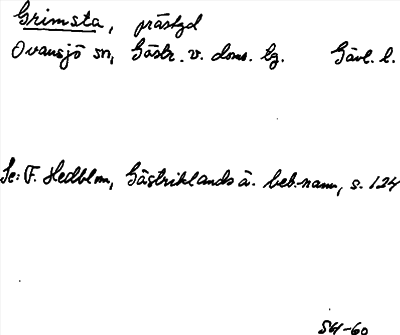 Grimsta, prästgd
Ovansjö sn, Gästr. v. doms. lg. Gävl. l.
Se: F. Hedblom, Gästriklands ä. beb.namn, s. 124
SH-60